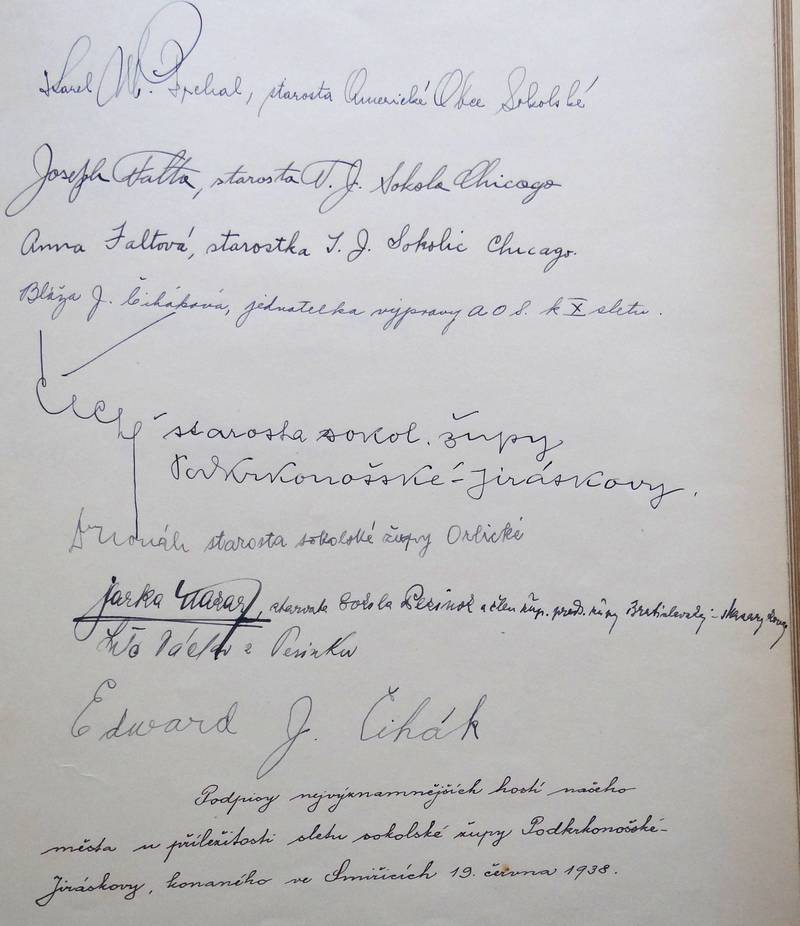 Karel M. Prchal, starosta Americké Obce Sokolské
Joseph Falta, starosta T. J. Sokola Chicago
Anna Faltová, starostka T. J. Sokolic Chicago.
Blaža J. Čiháková, jednatelka výpravy A O S. k X sletu.
starosta sokol. župy
Podkrkonošské-Jiráskovy.
starosta sokolské župy Orlické
Jarka, starosta Sokola Pezinok a člen župy Bratislavskej-
z Pezinku
Edward J. Čihák
Podpisy nejvýznamnějších hostí našeho
města u příležitosti sletu sokolské župy Podkrkonošské-
Jiráskovy, konaného ve Smiřicích 19. června 1938.